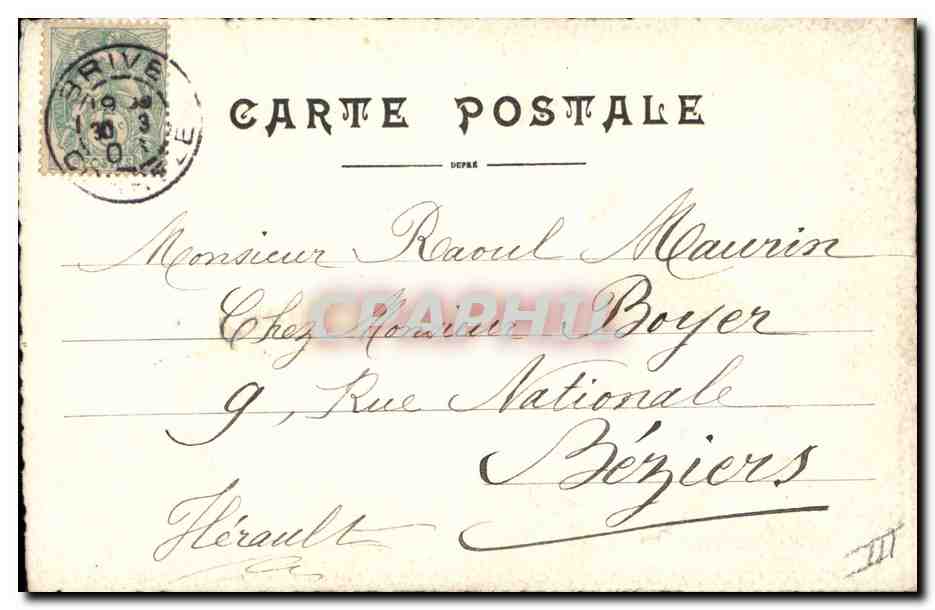 BRIVE
CARTE POSTALE
DEPRÉ
Monsieur Raoul Maurin
Chez Monsieur Boyer
9, Rue Nationale
Béziers
Hérault
III